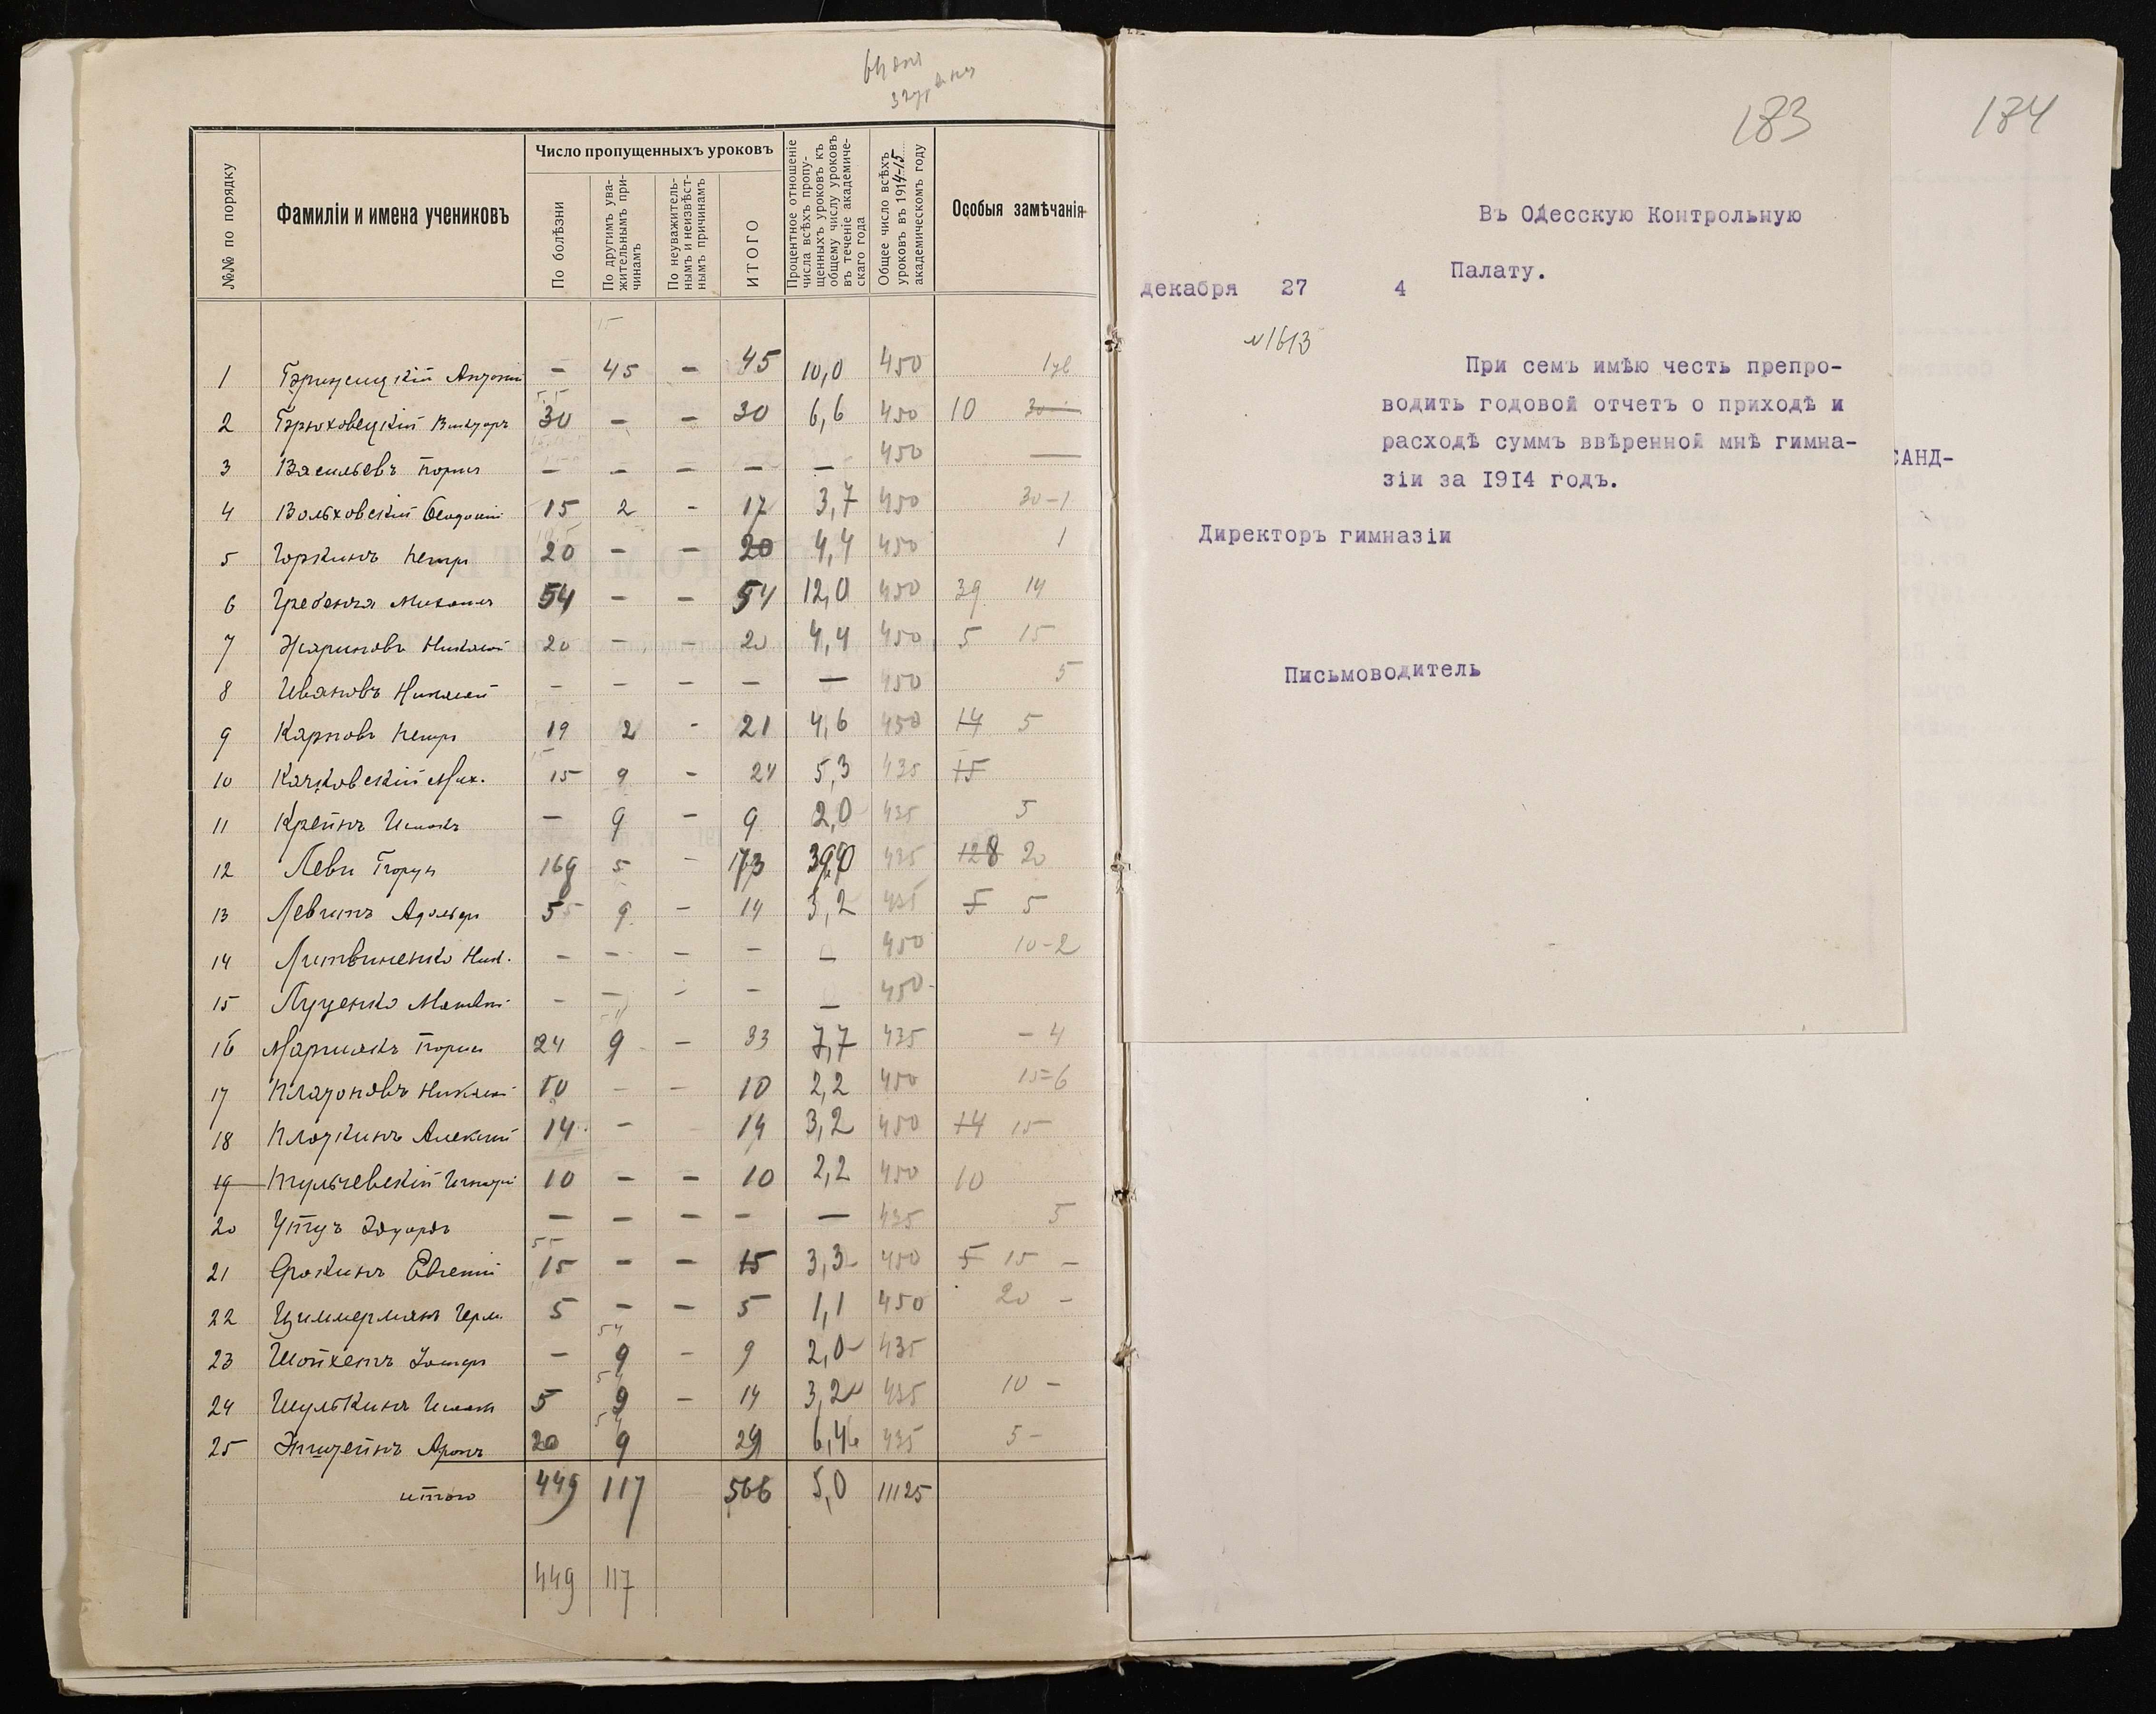 №№ по порядку
Фамиліи и имена учениковъ
Число пропущенныхъ уроковъ
По болѣзни
По другимъ ува-
жительнымъ при-
чинамъ
По неуважитель-
нымъ и неизвѣст-
нымъ причинамъ
ИТОГО
Процентное отношеніе
числа всѣхъ пропу-
щенныхъ уроковъ къ
общему числу уроковъ
въ теченіе академиче-
скаго года
Общее число всѣхъ
уроковъ въ 1914-15
академическомъ году
Особыя замѣчанія
15
1 — 45 — 45 10,0 450
2 30 — — 30 6,6 450 10 30
3 Васильевъ Борисъ — — — — — 450 —
4 Вольховскій 15 2 - 17 3,7 450 30-1
5 Горкинъ Петръ 20 — — 20 4,4 450 1
6 Гребенча Михаилъ 54 — — 54 12,0 450 39 14
7 Жариновъ Николай 20 — — 20 4,4 450 5 15
8 Ивановъ Николай — — — — — 450 5
9 Карповъ Петръ 19 2 - 21 4,6 450 14 5
10 Качковскій Мих. 15 9 - 24 5,3 435 15
11 Крейнъ Исаакъ — 9 — 9 2,0 435 5
12 Леви 169 5 - 173 435 128 20
13 Левинъ Адольфъ 5 9 — 14 3,2 435 5 5
14 Литвиненко Ник. — — — — — 450 10-2
15 Луценко Матвѣй — — — — — 450
16 Борисъ 24 9 — 33 7,7 435 - 4
17 Платоновъ Николай 10 — — 10 2,2 450 15-6
18 Плоткинъ Алексѣй 14 — 14 3,2 450 14 15
19 10 — — 10 2,2 450 10
20 — — — — — 435 5
21 Срокинъ Евгеній 15 — — 15 3,3 450 5 15 —
22 Циммерманъ Герм. 5 — — 5 1,1 450 20 —
23 — 9 — 9 2,0 435
24 Шулькинъ Исаакъ 5 9 — 14 3,2 435 10 —
25 Аронъ 20 9 29 6,4 435 5 —
итого 449 117 566 5,0 11125
449 117
183
184
Въ Одесскую Контрольную
Палату.
декабря 27 4
№1613
При семъ имѣю честь препро-
водить годовой отчетъ о приходѣ и
расходѣ суммъ ввѣренной мнѣ гимна-
зіи за 1914 годъ.
САНД-
Директоръ гимназіи
Письмоводитель